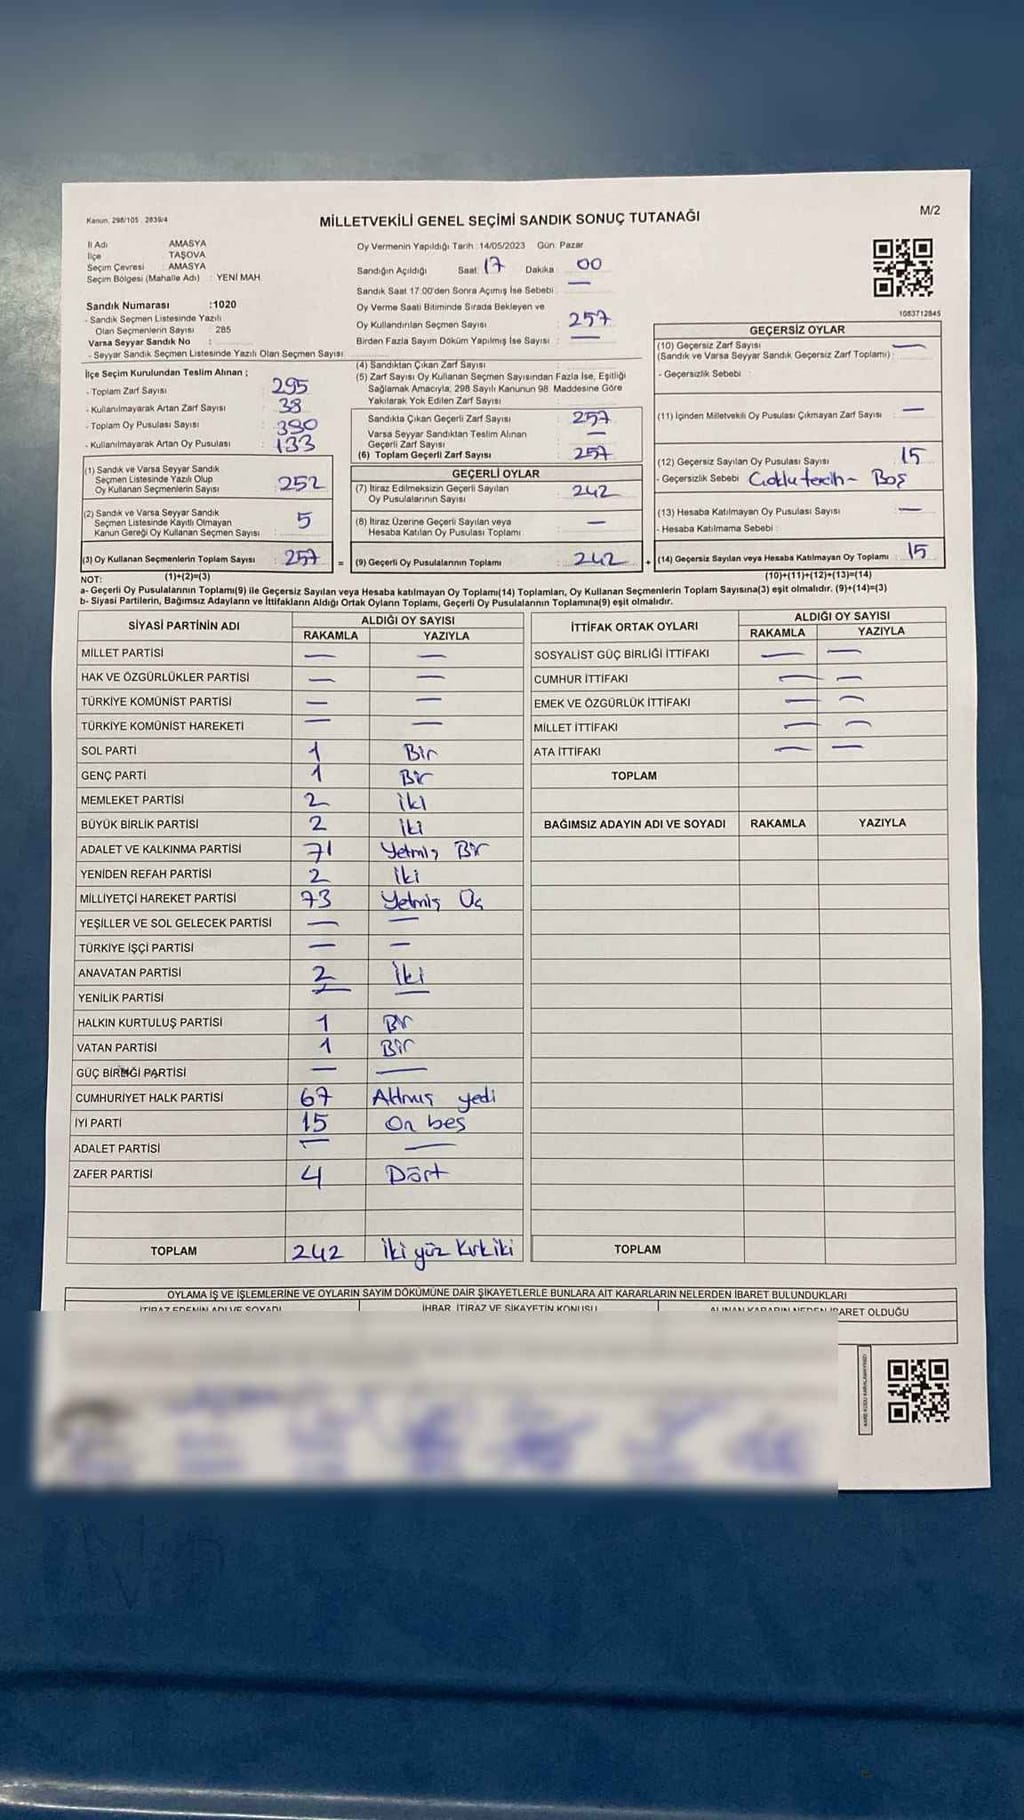 Kanun, 298/105 2839/4
MİLLETVEKİLİ GENEL SEÇİMİ SANDIK SONUÇ TUTANAĞI
M/2
İl Adı AMASYA
İlçe TAŞOVA
Seçim Çevresi : AMASYA
Seçim Bölgesi (Mahalle Adı) : YENİ MAH
Sandık Numarası :1020
- Sandık Seçmen Listesinde Yazılı
Olan Seçmenlerin Sayısı : 285
Varsa Seyyar Sandık No :
- Seyyar Sandık Seçmen Listesinde Yazılı Olan Seçmen Sayısı
Oy Vermenin Yapıldığı Tarih : 14/05/2023 Gün: Pazar
Sandığın Açıldığı Saat 17 Dakika 00
Sandık Saat 17:00'den Sonra Açılmış İse Sebebi : —
Oy Verme Saati Bitiminde Sırada Bekleyen ve
Oy Kullandırılan Seçmen Sayısı : 257
Birden Fazla Sayım Döküm Yapılmış İse Sayısı : —
1083712845
İlçe Seçim Kurulundan Teslim Alınan ;
- Toplam Zarf Sayısı : 295
- Kullanılmayarak Artan Zarf Sayısı : 38
- Toplam Oy Pusulası : 390
- Kullanılmayarak Artan Oy Pusulası : 133
(1) Sandık ve Varsa Seyyar Sandık
Seçmen Listesinde Yazılı Olup
Oy Kullanan Seçmenlerin Sayısı : 252
(2) Sandık ve Varsa Seyyar Sandık
Seçmen Listesinde Kayıtlı Olmayan
Kanun Gereği Oy Kullanan Seçmen Sayısı : 5
(3) Oy Kullanan Seçmenlerin Toplam Sayısı : 257 =
(4) Sandıktan Çıkan Zarf Sayısı
(5) Zarf Sayısı Oy Kullanan Seçmen Sayısından Fazla İse, Eşitliği
Sağlamak Amacıyla, 298 Sayılı Kanunun 98. Maddesine Göre
Yakılarak Yok Edilen Zarf Sayısı
Sandıkta Çıkan Geçerli Zarf Sayısı : 257
Varsa Seyyar Sandıktan Teslim Alınan
Geçerli Zarf Sayısı : —
(6) Toplam Geçerli Zarf Sayısı : 257
GEÇERLİ OYLAR
(7) İtiraz Edilmeksizin Geçerli Sayılan
Oy Pusulalarının Sayısı : 242
(8) İtiraz Üzerine Geçerli Sayılan veya
Hesaba Katılan Oy Pusulası Toplamı : —
(9) Geçerli Oy Pusulalarının Toplamı : 242 +
GEÇERSİZ OYLAR
(10) Geçersiz Zarf Sayısı —
(Sandık ve Varsa Seyyar Sandık Geçersiz Zarf Toplamı) :
- Geçersizlik Sebebi :
(11) İçinden Milletvekili Oy Pusulası Çıkmayan Zarf Sayısı : —
(12) Geçersiz Sayılan Oy Pusulası Sayısı : 15
- Geçersizlik Sebebi : Çoklu tercih - Boş
(13) Hesaba Katılmayan Oy Pusulası Sayısı : —
- Hesaba Katılmama Sebebi :
(14) Geçersiz Sayılan veya Hesaba Katılmayan Oy Toplamı : 15
NOT: (1)+(2)=(3) (10)+(11)+(12)+(13)=(14)
a- Geçerli Oy Pusulalarının Toplamı(9) ile Geçersiz Sayılan veya Hesaba katılmayan Oy Toplamı(14) Toplamları, Oy Kullanan Seçmenlerin Toplam Sayısına(3) eşit olmalıdır. (9)+(14)=(3)
b- Siyasi Partilerin, Bağımsız Adayların ve İttifakların Aldığı Ortak Oyların Toplamı, Geçerli Oy Pusulalarının Toplamına(9) eşit olmalıdır.
SİYASİ PARTİNİN ADI ALDIĞI OY SAYISI
RAKAMLA YAZIYLA
MİLLET PARTİSİ — —
HAK VE ÖZGÜRLÜKLER PARTİSİ — —
TÜRKİYE KOMÜNİST PARTİSİ — —
TÜRKİYE KOMÜNİST HAREKETİ — —
SOL PARTİ 1 Bir
GENÇ PARTİ 1 Bir
MEMLEKET PARTİSİ 2 iki
BÜYÜK BİRLİK PARTİSİ 2 iki
ADALET VE KALKINMA PARTİSİ 71 Yetmiş Bir
YENİDEN REFAH PARTİSİ 2 iki
MİLLİYETÇİ HAREKET PARTİSİ 73 Yetmiş Üç
YEŞİLLER VE SOL GELECEK PARTİSİ — —
TÜRKİYE İŞÇİ PARTİSİ — —
ANAVATAN PARTİSİ 2 iki
YENİLİK PARTİSİ — —
HALKIN KURTULUŞ PARTİSİ 1 Bir
VATAN PARTİSİ 1 Bir
GÜÇ BİRLİĞİ PARTİSİ — —
CUMHURİYET HALK PARTİSİ 67 Altmış yedi
İYİ PARTİ 15 On beş
ADALET PARTİSİ — —
ZAFER PARTİSİ 4 Dört
TOPLAM 242 İki yüz Kırk iki
İTTİFAK ORTAK OYLARI ALDIĞI OY SAYISI
RAKAMLA YAZIYLA
SOSYALİST GÜÇ BİRLİĞİ İTTİFAKI — —
CUMHUR İTTİFAKI — —
EMEK VE ÖZGÜRLÜK İTTİFAKI — —
MİLLET İTTİFAKI — —
ATA İTTİFAKI — —
TOPLAM
BAĞIMSIZ ADAYIN ADI VE SOYADI RAKAMLA YAZIYLA
TOPLAM
OYLAMA İŞ VE İŞLEMLERİNE VE OYLARIN SAYIM DÖKÜMÜNE DAİR ŞİKAYETLERLE BUNLARA AİT KARARLARIN NELERDEN İBARET BULUNDUKLARI
İTİRAZ EDENİN ADI VE SOYADI İHBAR, İTİRAZ VE ŞİKAYETİN KONUSU ALINAN KARARIN NEDEN İBARET OLDUĞU